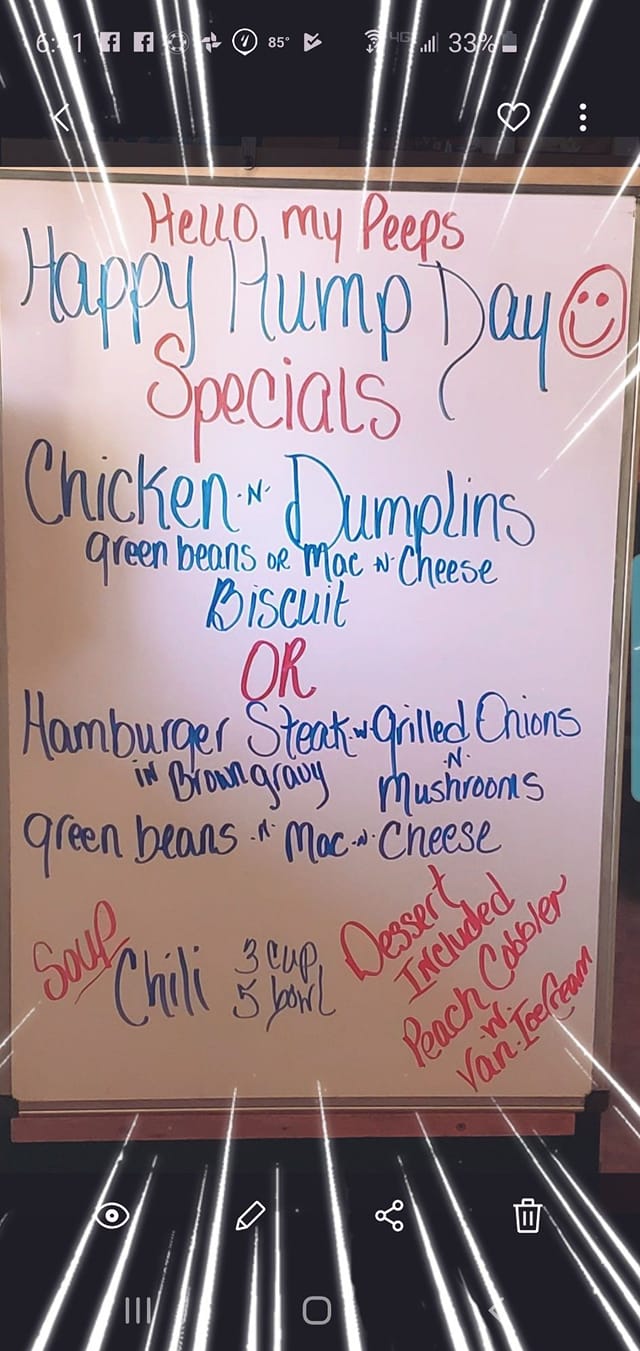 6:41 85° 4G 33%
Hello my Peeps
Happy Hump Day
Specials
Chicken -N- Dumplins
green beans OR Mac N Cheese
Biscuit
OR
Hamburger Steak w grilled Onions
in Brown gravy -N- Mushrooms
green beans -N- Mac -N- Cheese
Soup
Chili 3 cup
5 bowl
Dessert
Included
Peach Cobbler
w.
Van. Ice Cream